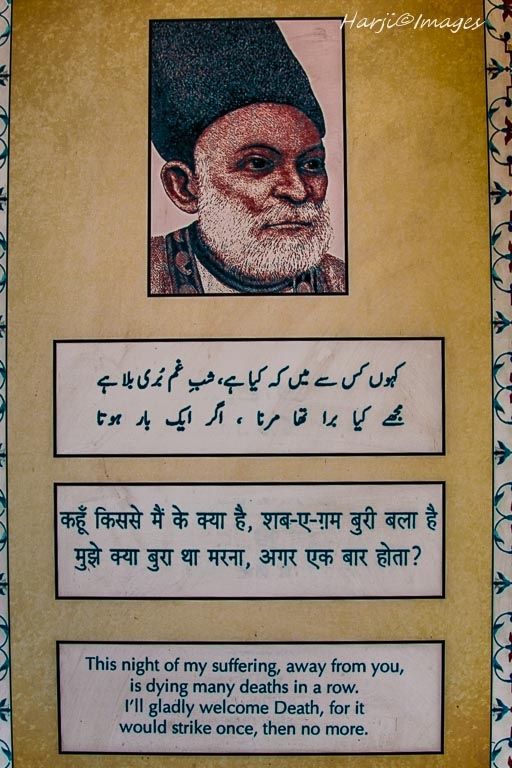 Harji©Images
کہوں کس سے میں کہ کیا ہے، شبِ غم بُری بلا ہے
مجھے کیا برا تھا مرنا ، اگر ایک بار ہوتا
कहूँ किससे मैं के क्या है, शब-ए-ग़म बुरी बला है
मुझे क्या बुरा था मरना, अगर एक बार होता?
This night of my suffering, away from you,
is dying many deaths in a row.
I'll gladly welcome Death, for it
would strike once, then no more.